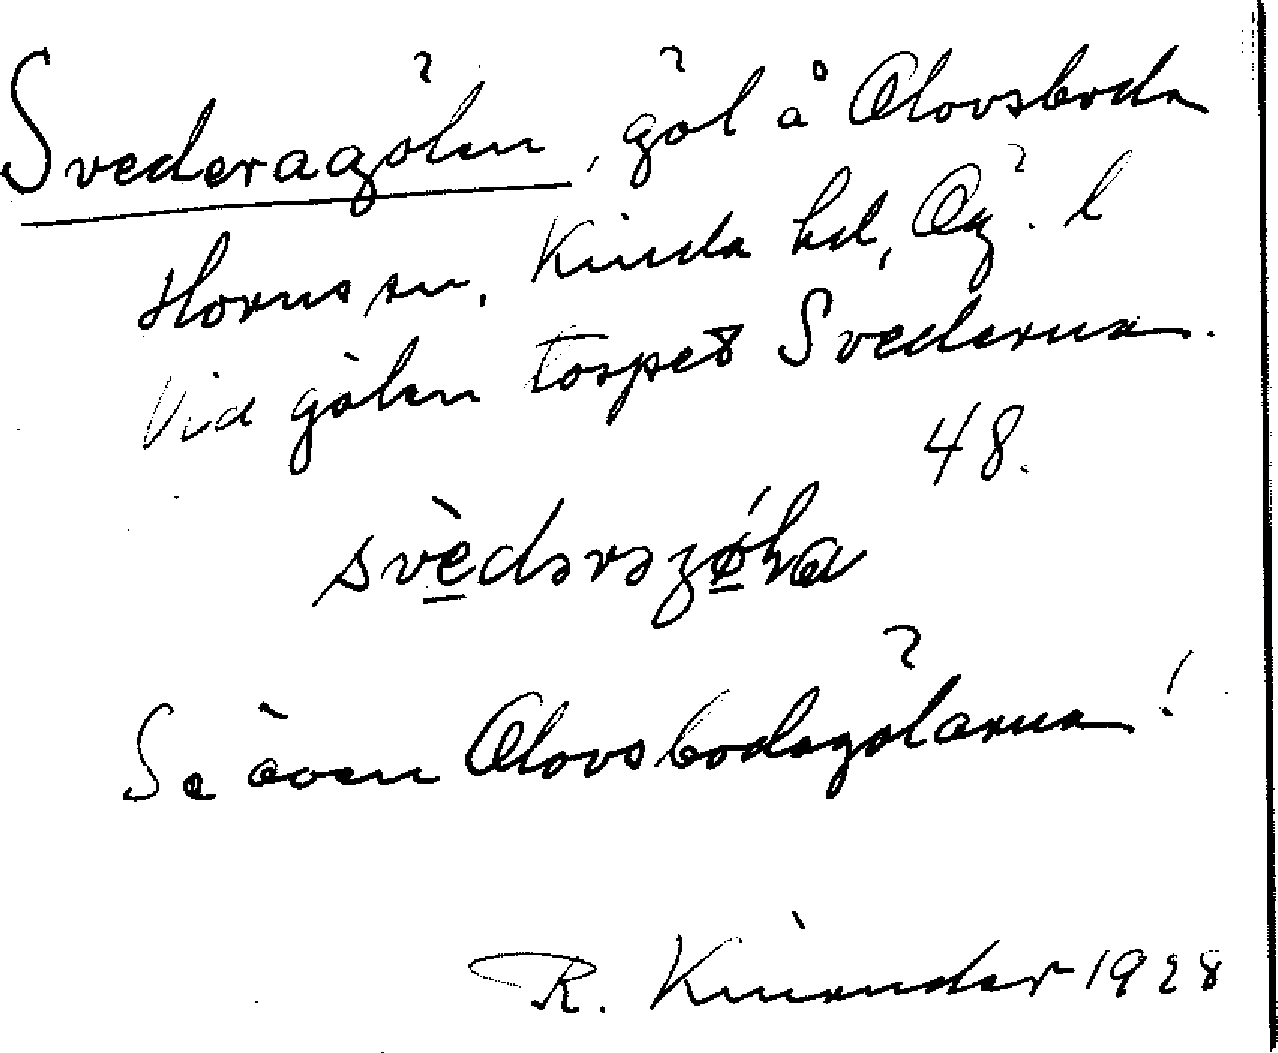 Svederagölen, göl å Olovsboda
Horns sn, Kinda hd, Ög. l
Vid gölen torpet Svederna.
48.
Se även Olovsbodagölarna!
R. Kinander 1928